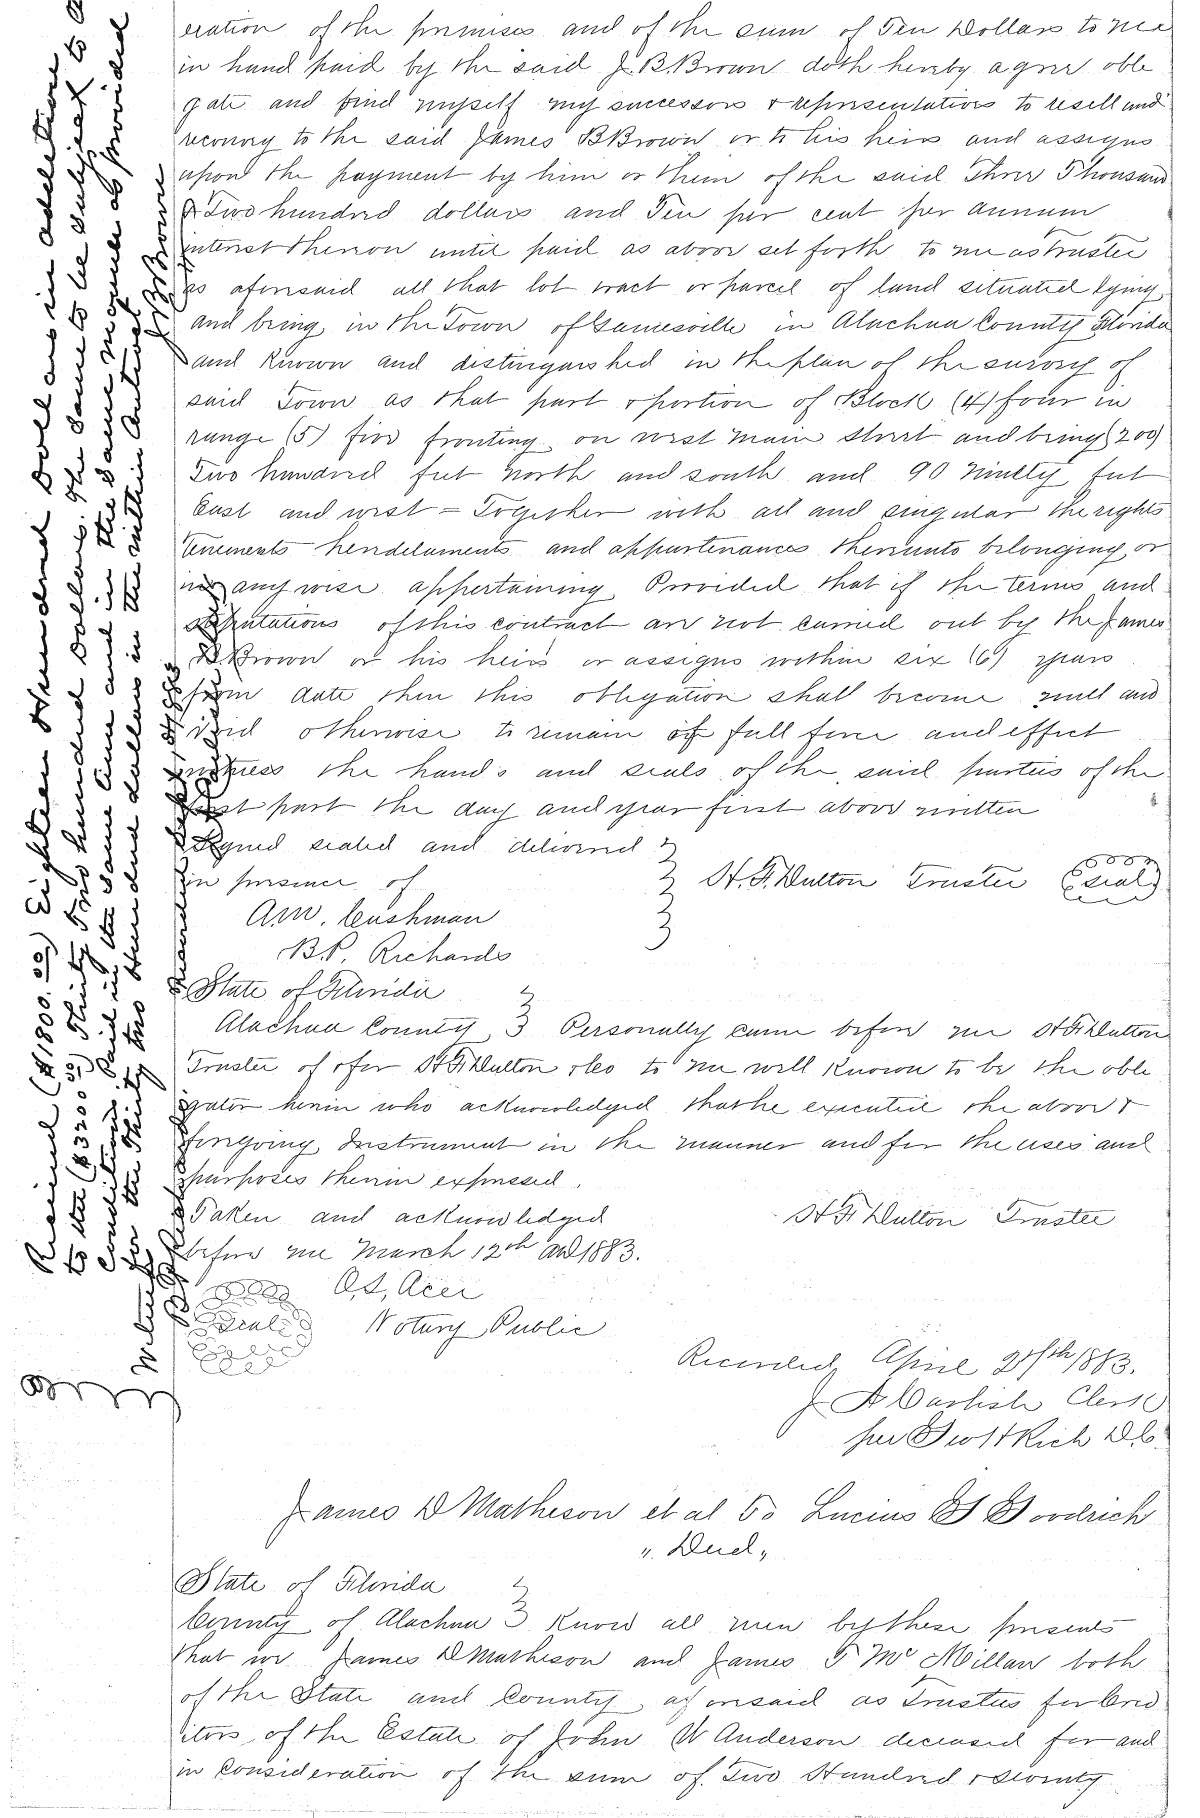 eration of the premises and of the sum of Ten Dollars to me
in hand paid by the said J. B. Brown doth hereby agree oble
gate and bind myself my successors & representatives to resell and
reconvey to the said James B Brown or to his heirs and assigns
upon the payment by him or them of the said Three Thousand
& Two hundred dollars and Ten per cent per annum
interest thereon until paid as above set forth to me as trustee
as aforesaid all that lot tract or parcel of land situated lying
and being in the Town of Gainesville in Alachua County Florida
and Known and distinguished in the plan of the survey of
said Town as that part & portion of Block (4) four in
range (5) five fronting on west Main Street and being (200)
Two hundred feet North and south and 90 Ninety feet
East and west = Together with all and singular the rights
tenements and appurtenances thereunto belonging or
in any wise appertaining Provided that if the terms and
of this contract are not carried out by the James
B Brown or his heirs or assigns within six (6) years
from date then this obligation shall become null and
void otherwise to remain of full force and effect
witness the hand's and seals of the said parties of the
first part the day and year first above written
Signed sealed and delivered
in presence of H. F. Dutton Trustee (seal)
A. W. Cushman
B. P. Richards
State of Florida
Alachua County Personally came before me H F Dutton
Trustee of & for H F Dutton & Co to me well Known to be the obli
gator herein who acknowledged that he executed the above &
foregoing Instrument in the manner and for the uses and
purposes therein expressed.
Taken and acknowledged H F Dutton Trustee
before me March 12th AD 1883.
Seal Notary Public
Recorded April 1883.
J A Carlisle Clerk
per Geo H Rich D.C.
James D Matheson et al To Lucius G Goodrich
" Deed "
State of Florida
County of Alachua Know all men by these presents
that we James D Matheson and James F McMillan both
of the State and County aforesaid as Trustees for Cred
itors of the Estate of John W Anderson deceased for and
in Consideration of the sum of Two Hundred & seventy
Received ($1800.00) Eighteen Hundred Dollars in addition
to the ($3200.00) Thirty Two hundred Dollars. The same to be subject to
conditions Paid in the same time and in the same manner as provided
for the Thirty two Hundred dollars in the within
J B Brown